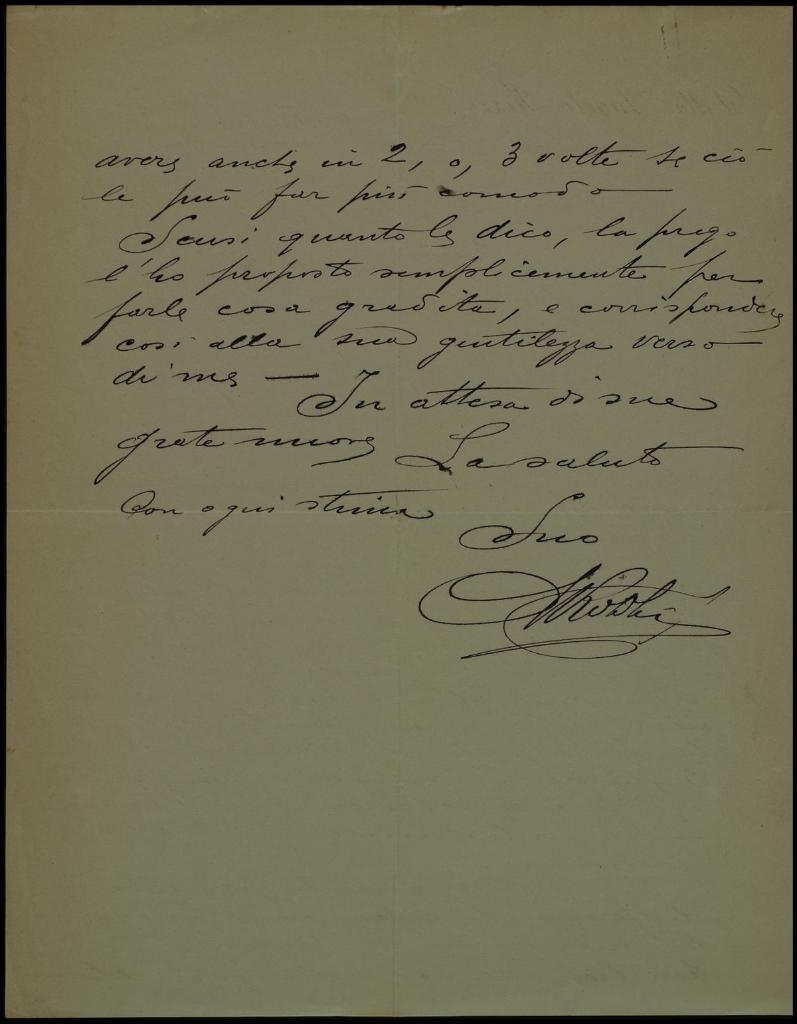 avere anche in 2, o, 3 volte se ciò
le può far più comodo
Scusi quanto le dico, la prego
l'ho proposto semplicemente per
farle cosa gradita, e corrispondere
così alla sua gentilezza verso
di me — In attesa di sue
grate nuove La saluto
Con ogni stima
Suo